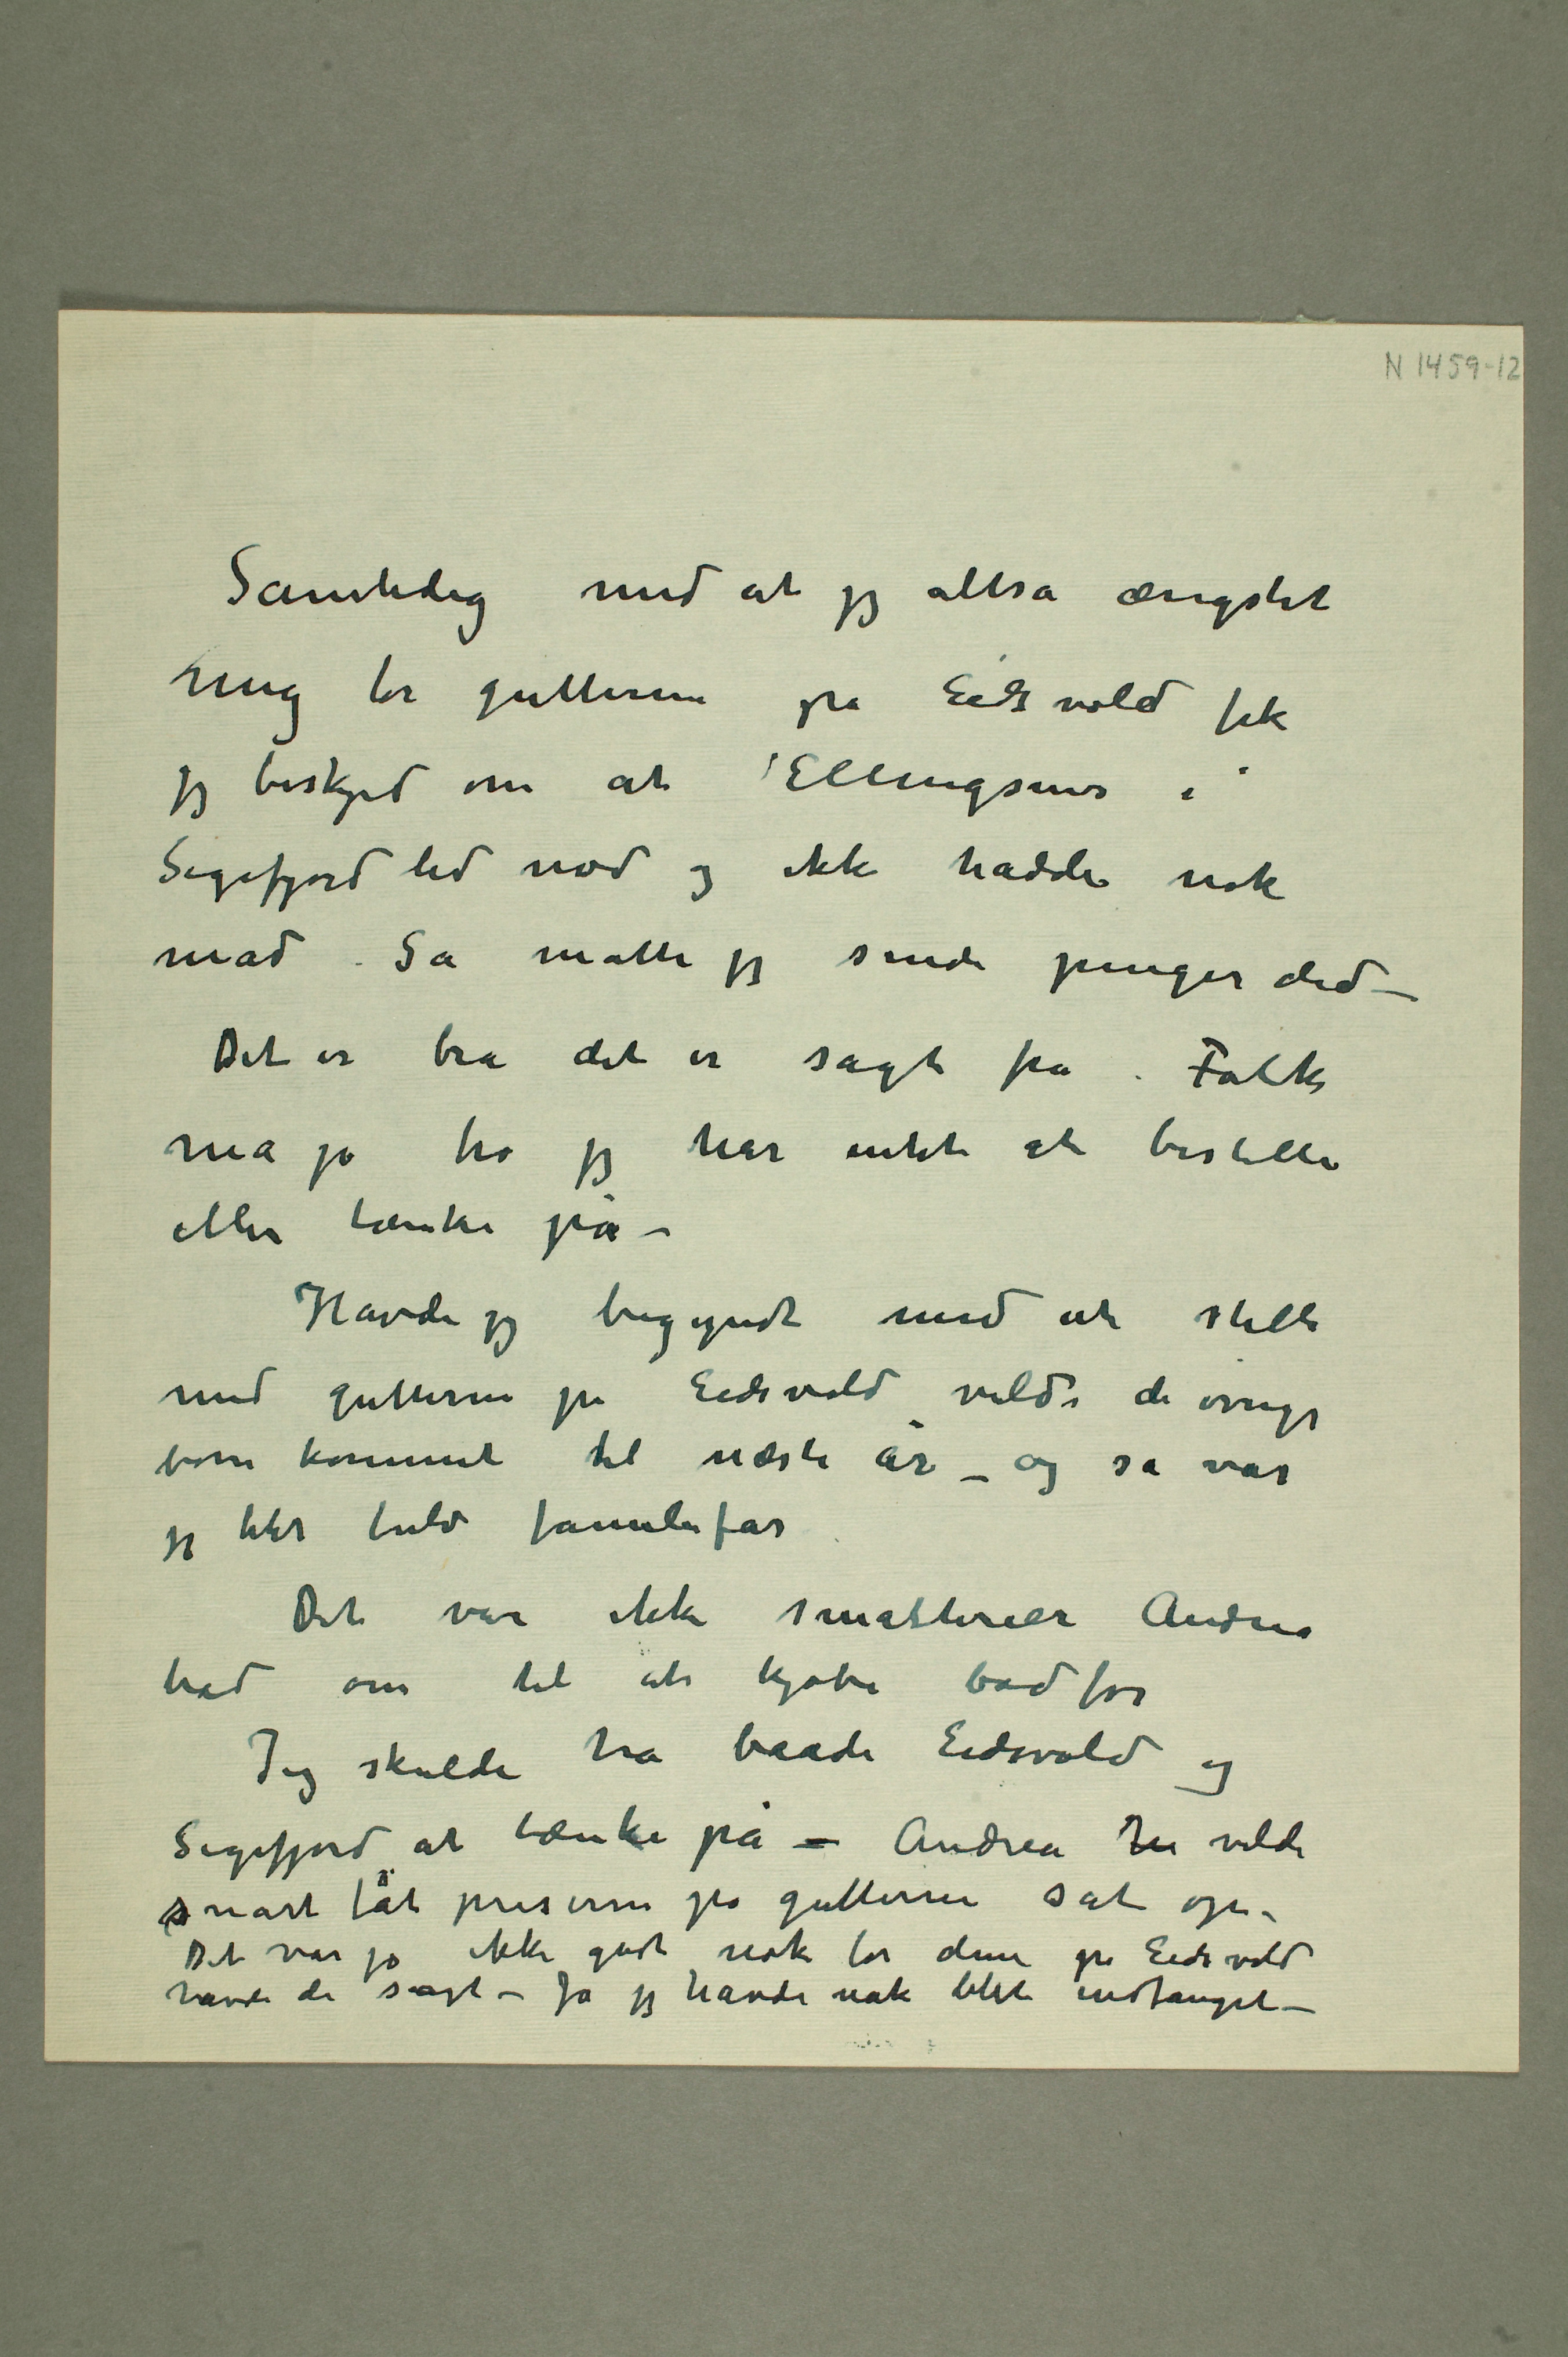 N 1459-12
Samtidig med at jeg altså ængstet
mig for gutterne på Eidsvold fik
jeg beskjed om at Ellingsens i
Sigefjord led nød og ikke hadde nok
mad. Så måtte jeg sende penger did –
Det er bra det er sagt fra. Folk
må jo tro jeg har intet at bestille
eller tænke på –
Havde jeg begyndt med at stelle
med gutterne på Eidsvold vilde de øvrige
born kommet til næste år – og så var
jeg blet fuld familiefar
Det var ikke småtterier Andrea
bad om til at kjøbe bad for
Jeg skulde ha baade Eidsvold og
Sigefjord at tænke på – Andrea vilde
snart fåt priserne på gutterne sat op.
Det var jo ikke godt nok for dem på Eidsvold
havde de sagt – Ja jeg havde nok blet indfanget –